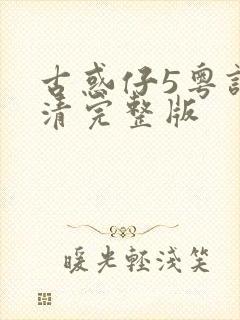 古惑仔5粤
清完整版
暖光輕淺笑